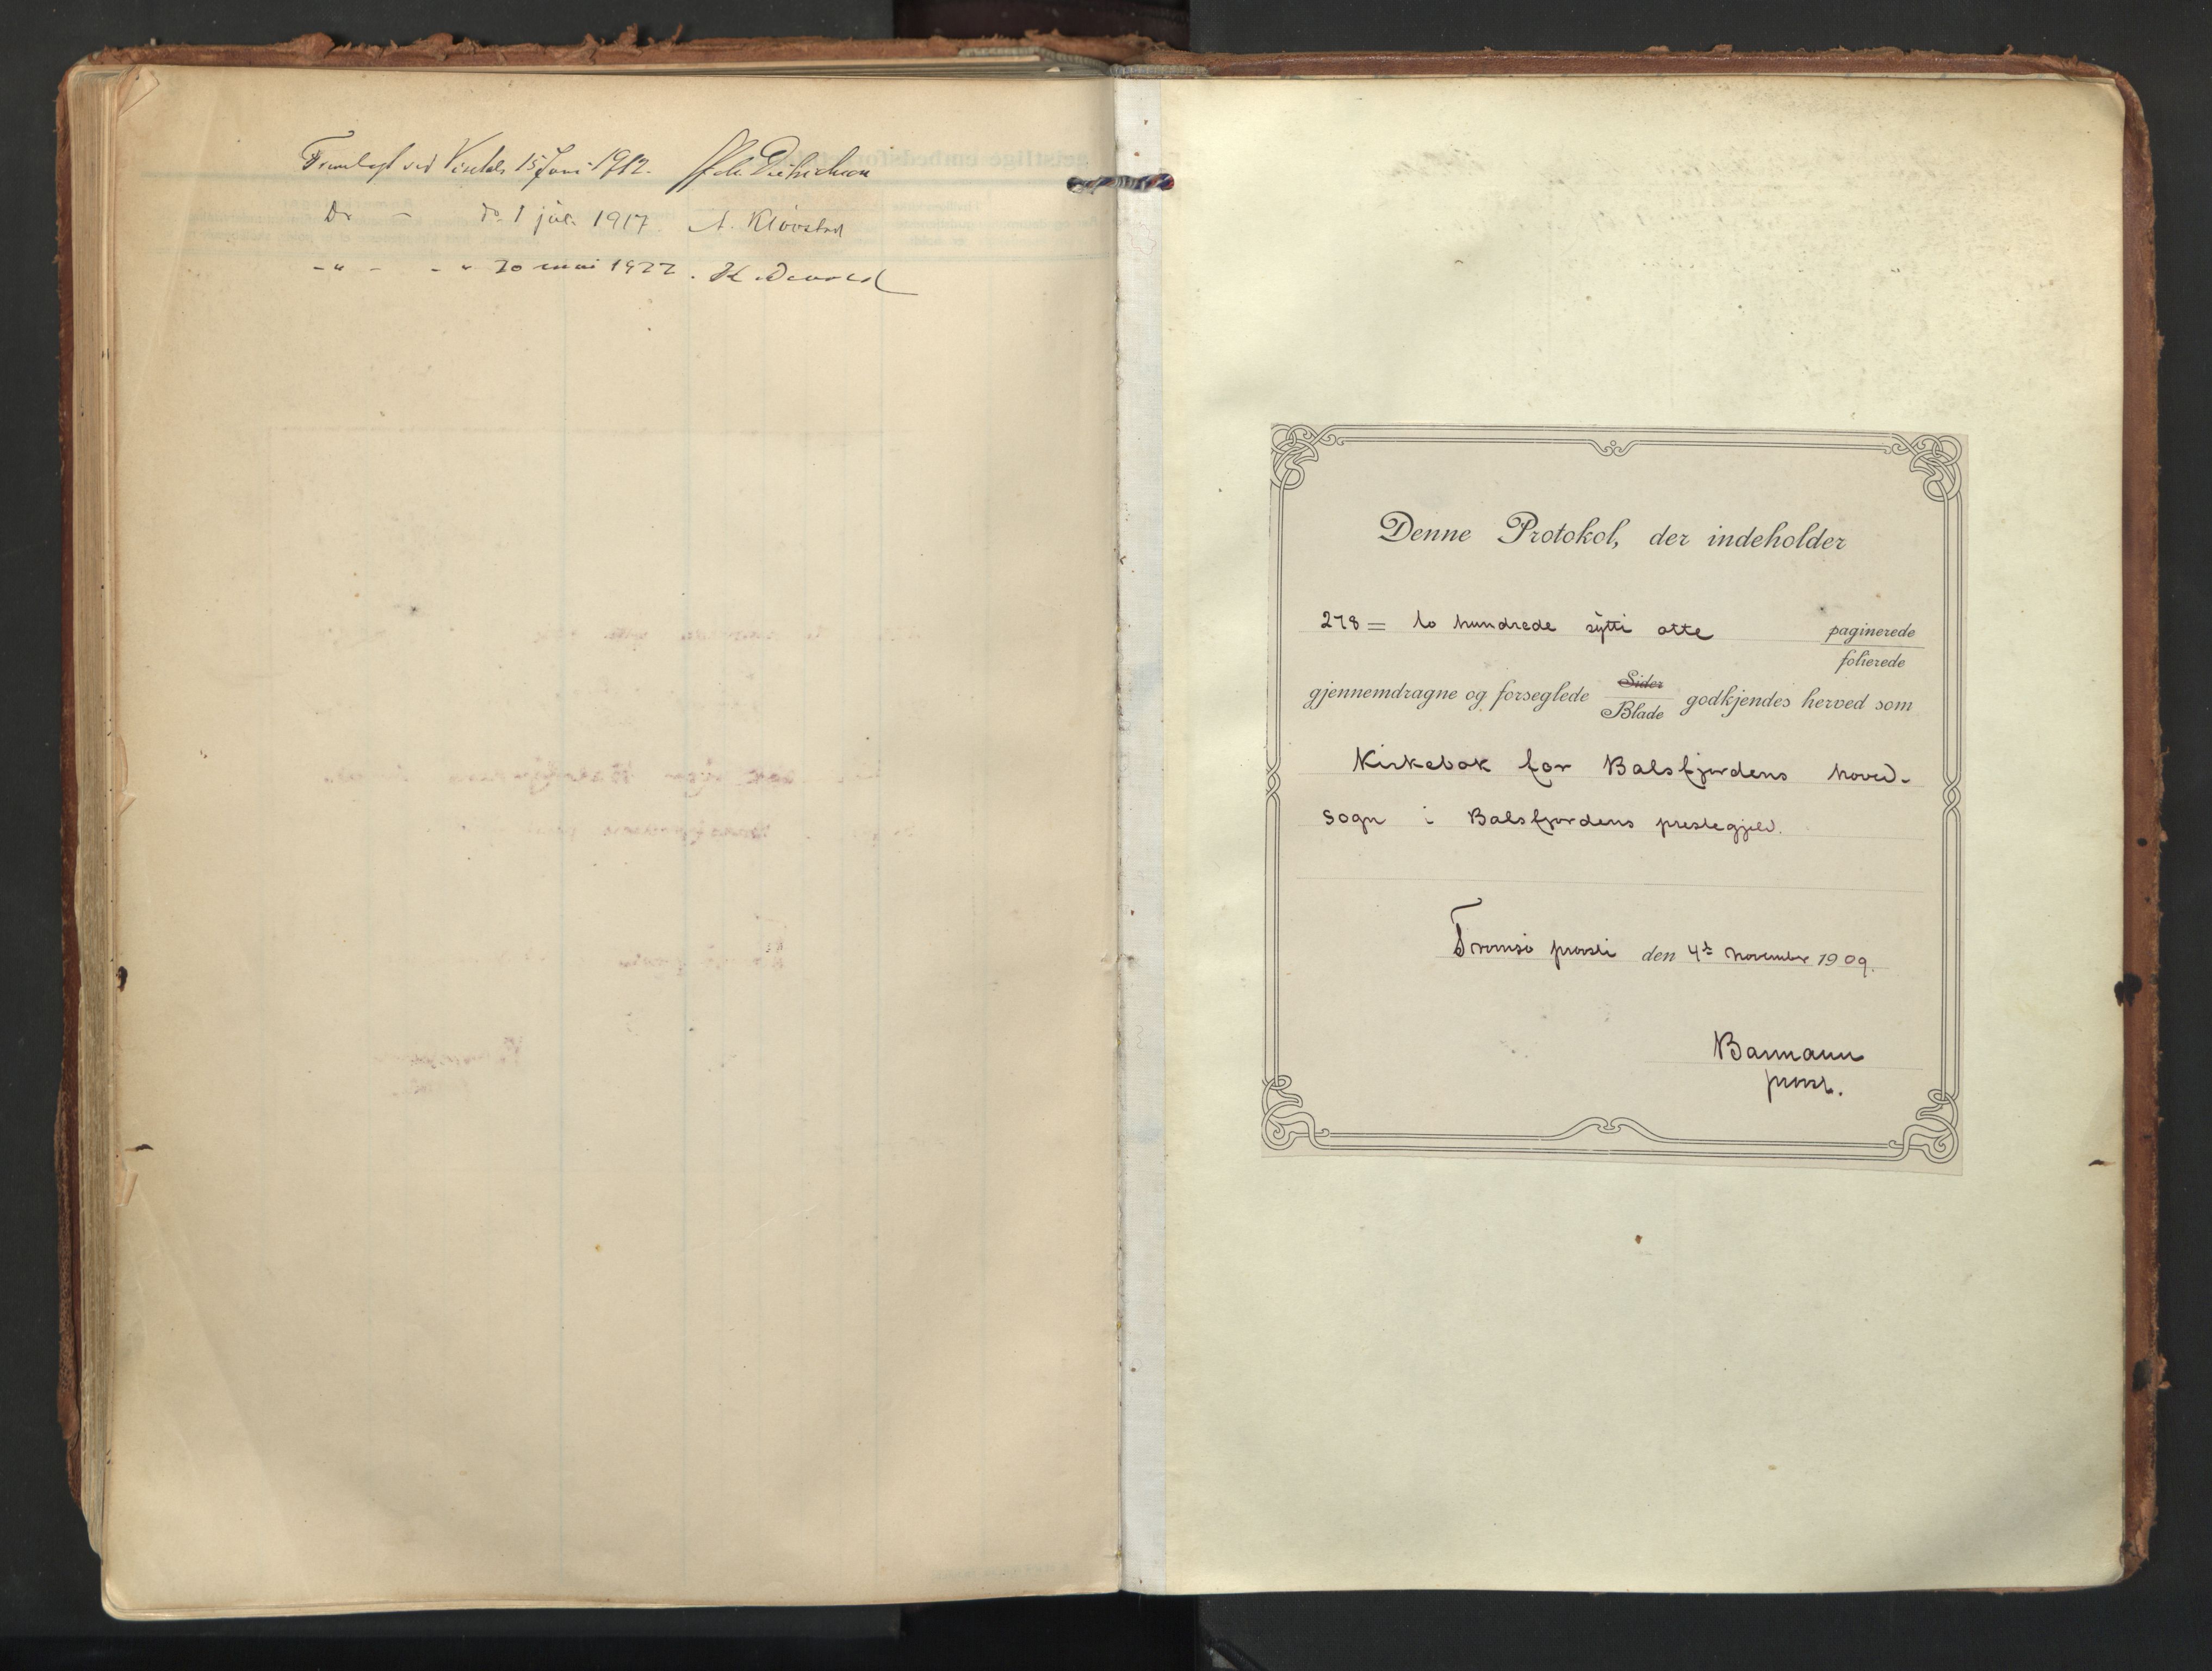 Fremlagt ved Visitats 15 Juni 1912. Dietrichson
Do - do 1 juli 1917 A. Kløvstad
-"- -" 20 mai 1922. K. Devold
Denne Protokol, der indeholder
278 = to hundrede sytti otte paginerede
folierede
gjennemdragne og forseglede Sider godkjendes herved som
Blade
Kirkebok for Balsfjordens hoved-
sogn i Balsfjordens prestegjeld.
Tromsø provsti den 4de november 1909.
Barmann
provst.